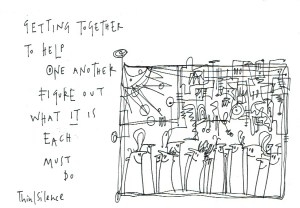 GETTING TOGETHER
TO HELP
ONE ANOTHER
FIGURE OUT
WHAT IT IS
EACH
MUST
DO
Think/Silence